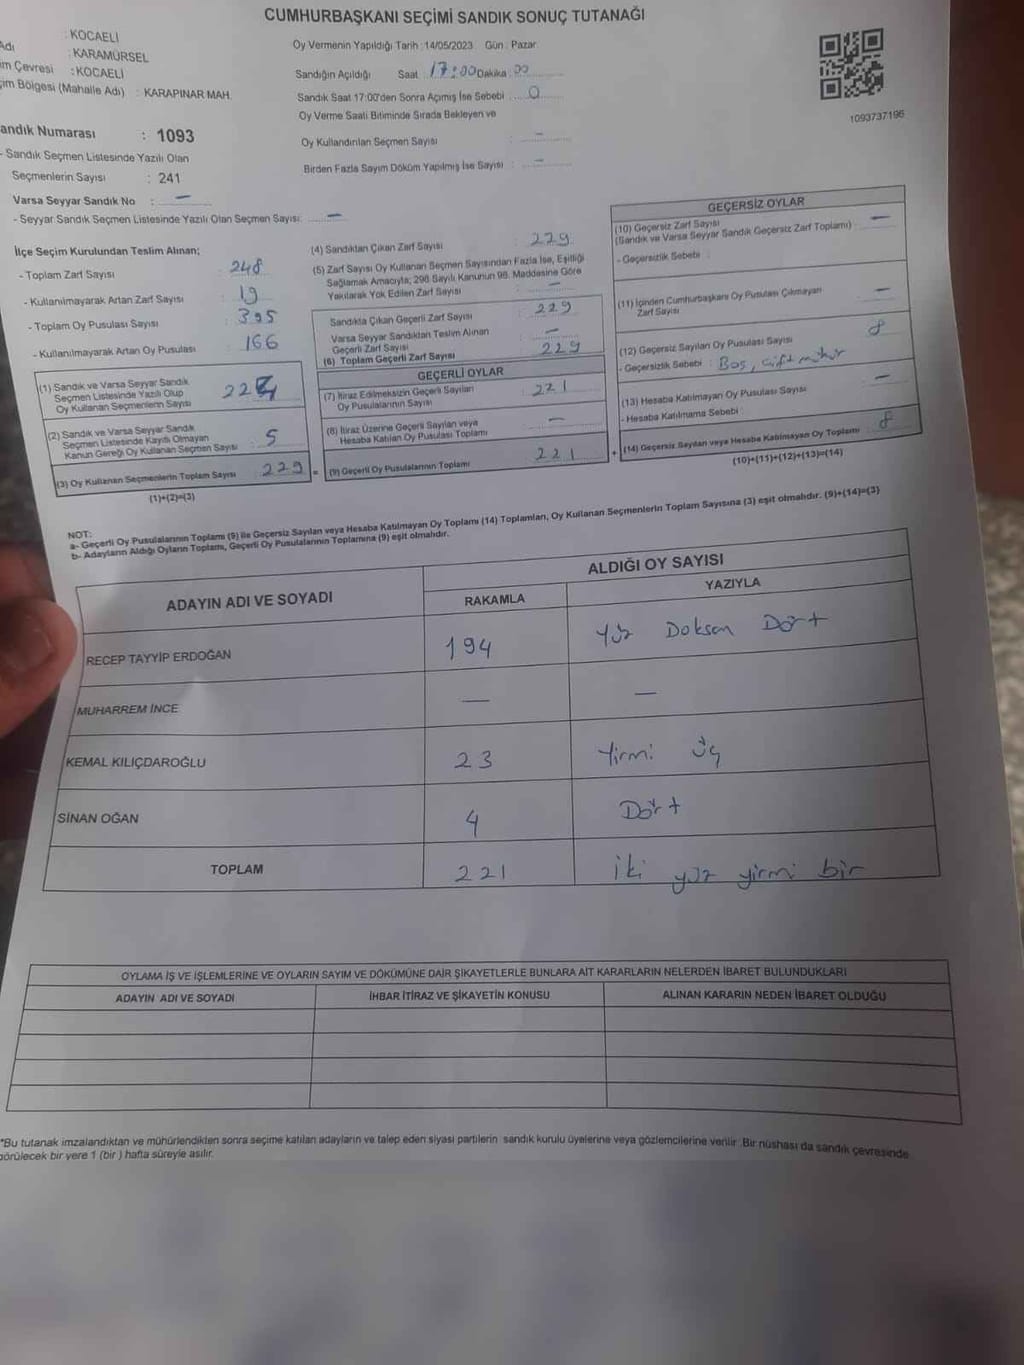 CUMHURBAŞKANI SEÇİMİ SANDIK SONUÇ TUTANAĞI
Adı : KOCAELİ
: KARAMÜRSEL
im Çevresi : KOCAELİ
çim Bölgesi (Mahalle Adı) : KARAPINAR MAH.
andık Numarası : 1093
- Sandık Seçmen Listesinde Yazılı Olan
Seçmenlerin Sayısı : 241
Varsa Seyyar Sandık No : —
- Seyyar Sandık Seçmen Listesinde Yazılı Olan Seçmen Sayısı: —
Oy Vermenin Yapıldığı Tarih : 14/05/2023 Gün : Pazar
Sandığın Açıldığı Saat 17:00 Dakika : 00
Sandık Saat 17:00'den Sonra Açımış İse Sebebi : 0
Oy Verme Saati Bitiminde Sırada Bekleyen ve
Oy Kullandırılan Seçmen Sayısı : —
Birden Fazla Sayım Döküm Yapılmış İse Sayısı : —
1093737196
İlçe Seçim Kurulundan Teslim Alınan;
- Toplam Zarf Sayısı : 248
- Kullanılmayarak Artan Zarf Sayısı : 19
- Toplam Oy Pusulası Sayısı : 395
- Kullanılmayarak Artan Oy Pusulası : 166
(1) Sandık ve Varsa Seyyar Sandık
Seçmen Listesinde Yazılı Olup
Oy Kullanan Seçmenlerin Sayısı : 224
(2) Sandık ve Varsa Seyyar Sandık
Seçmen Listesinde Kayıtlı Olmayan
Kanun Gereği Oy Kullanan Seçmen Sayısı : 5
(3) Oy Kullanan Seçmenlerin Toplam Sayısı : 229
(1)+(2)=(3)
(4) Sandıktan Çıkan Zarf Sayısı : 229
(5) Zarf Sayısı Oy Kullanan Seçmen Sayısından Fazla İse, Eşitliği
Sağlamak Amacıyla; 298 Sayılı Kanunun 98. Maddesine Göre
Yakılarak Yok Edilen Zarf Sayısı : —
Sandıkta Çıkan Geçerli Zarf Sayısı : 229
Varsa Seyyar Sandıktan Teslim Alınan
Geçerli Zarf Sayısı : —
(6) Toplam Geçerli Zarf Sayısı : 229
GEÇERLİ OYLAR
(7) İtiraz Edilmeksizin Geçerli Sayılan
Oy Pusulalarının Sayısı : 221
(8) İtiraz Üzerine Geçerli Sayılan veya
Hesaba Katılan Oy Pusulası Toplamı : —
= (9) Geçerli Oy Pusulalarının Toplamı : 221
GEÇERSİZ OYLAR
(10) Geçersiz Zarf Sayısı
(Sandık ve Varsa Seyyar Sandık Geçersiz Zarf Toplamı) : —
- Geçersizlik Sebebi :
(11) İçinden Cumhurbaşkanı Oy Pusulası Çıkmayan
Zarf Sayısı : —
(12) Geçersiz Sayılan Oy Pusulası Sayısı : 8
- Geçersizlik Sebebi : Boş, çift mühür
(13) Hesaba Katılmayan Oy Pusulası Sayısı : —
- Hesaba Katılmama Sebebi :
+ (14) Geçersiz Sayılan veya Hesaba Katılmayan Oy Toplamı : 8
(10)+(11)+(12)+(13)=(14)
NOT:
a- Geçerli Oy Pusulalarının Toplamı (9) ile Geçersiz Sayılan veya Hesaba Katılmayan Oy Toplamı (14) Toplamları, Oy Kullanan Seçmenlerin Toplam Sayısına (3) eşit olmalıdır. (9)+(14)=(3)
b- Adayların Aldığı Oyların Toplamı, Geçerli Oy Pusulalarının Toplamına (9) eşit olmalıdır.
ADAYIN ADI VE SOYADI
ALDIĞI OY SAYISI
RAKAMLA YAZIYLA
RECEP TAYYİP ERDOĞAN 194 Yüz Doksan Dört
MUHARREM İNCE — —
KEMAL KILIÇDAROĞLU 23 Yirmi üç
SİNAN OĞAN 4 Dört
TOPLAM 221 İki yüz yirmi bir
OYLAMA İŞ VE İŞLEMLERİNE VE OYLARIN SAYIM VE DÖKÜMÜNE DAİR ŞİKAYETLERLE BUNLARA AİT KARARLARIN NELERDEN İBARET BULUNDUKLARI
ADAYIN ADI VE SOYADI İHBAR İTİRAZ VE ŞİKAYETİN KONUSU ALINAN KARARIN NEDEN İBARET OLDUĞU
*Bu tutanak imzalandıktan ve mühürlendikten sonra seçime katılan adayların ve talep eden siyasi partilerin sandık kurulu üyelerine veya gözlemcilerine verilir. Bir nüshası da sandık çevresinde
görülecek bir yere 1 (bir ) hafta süreyle asılır.